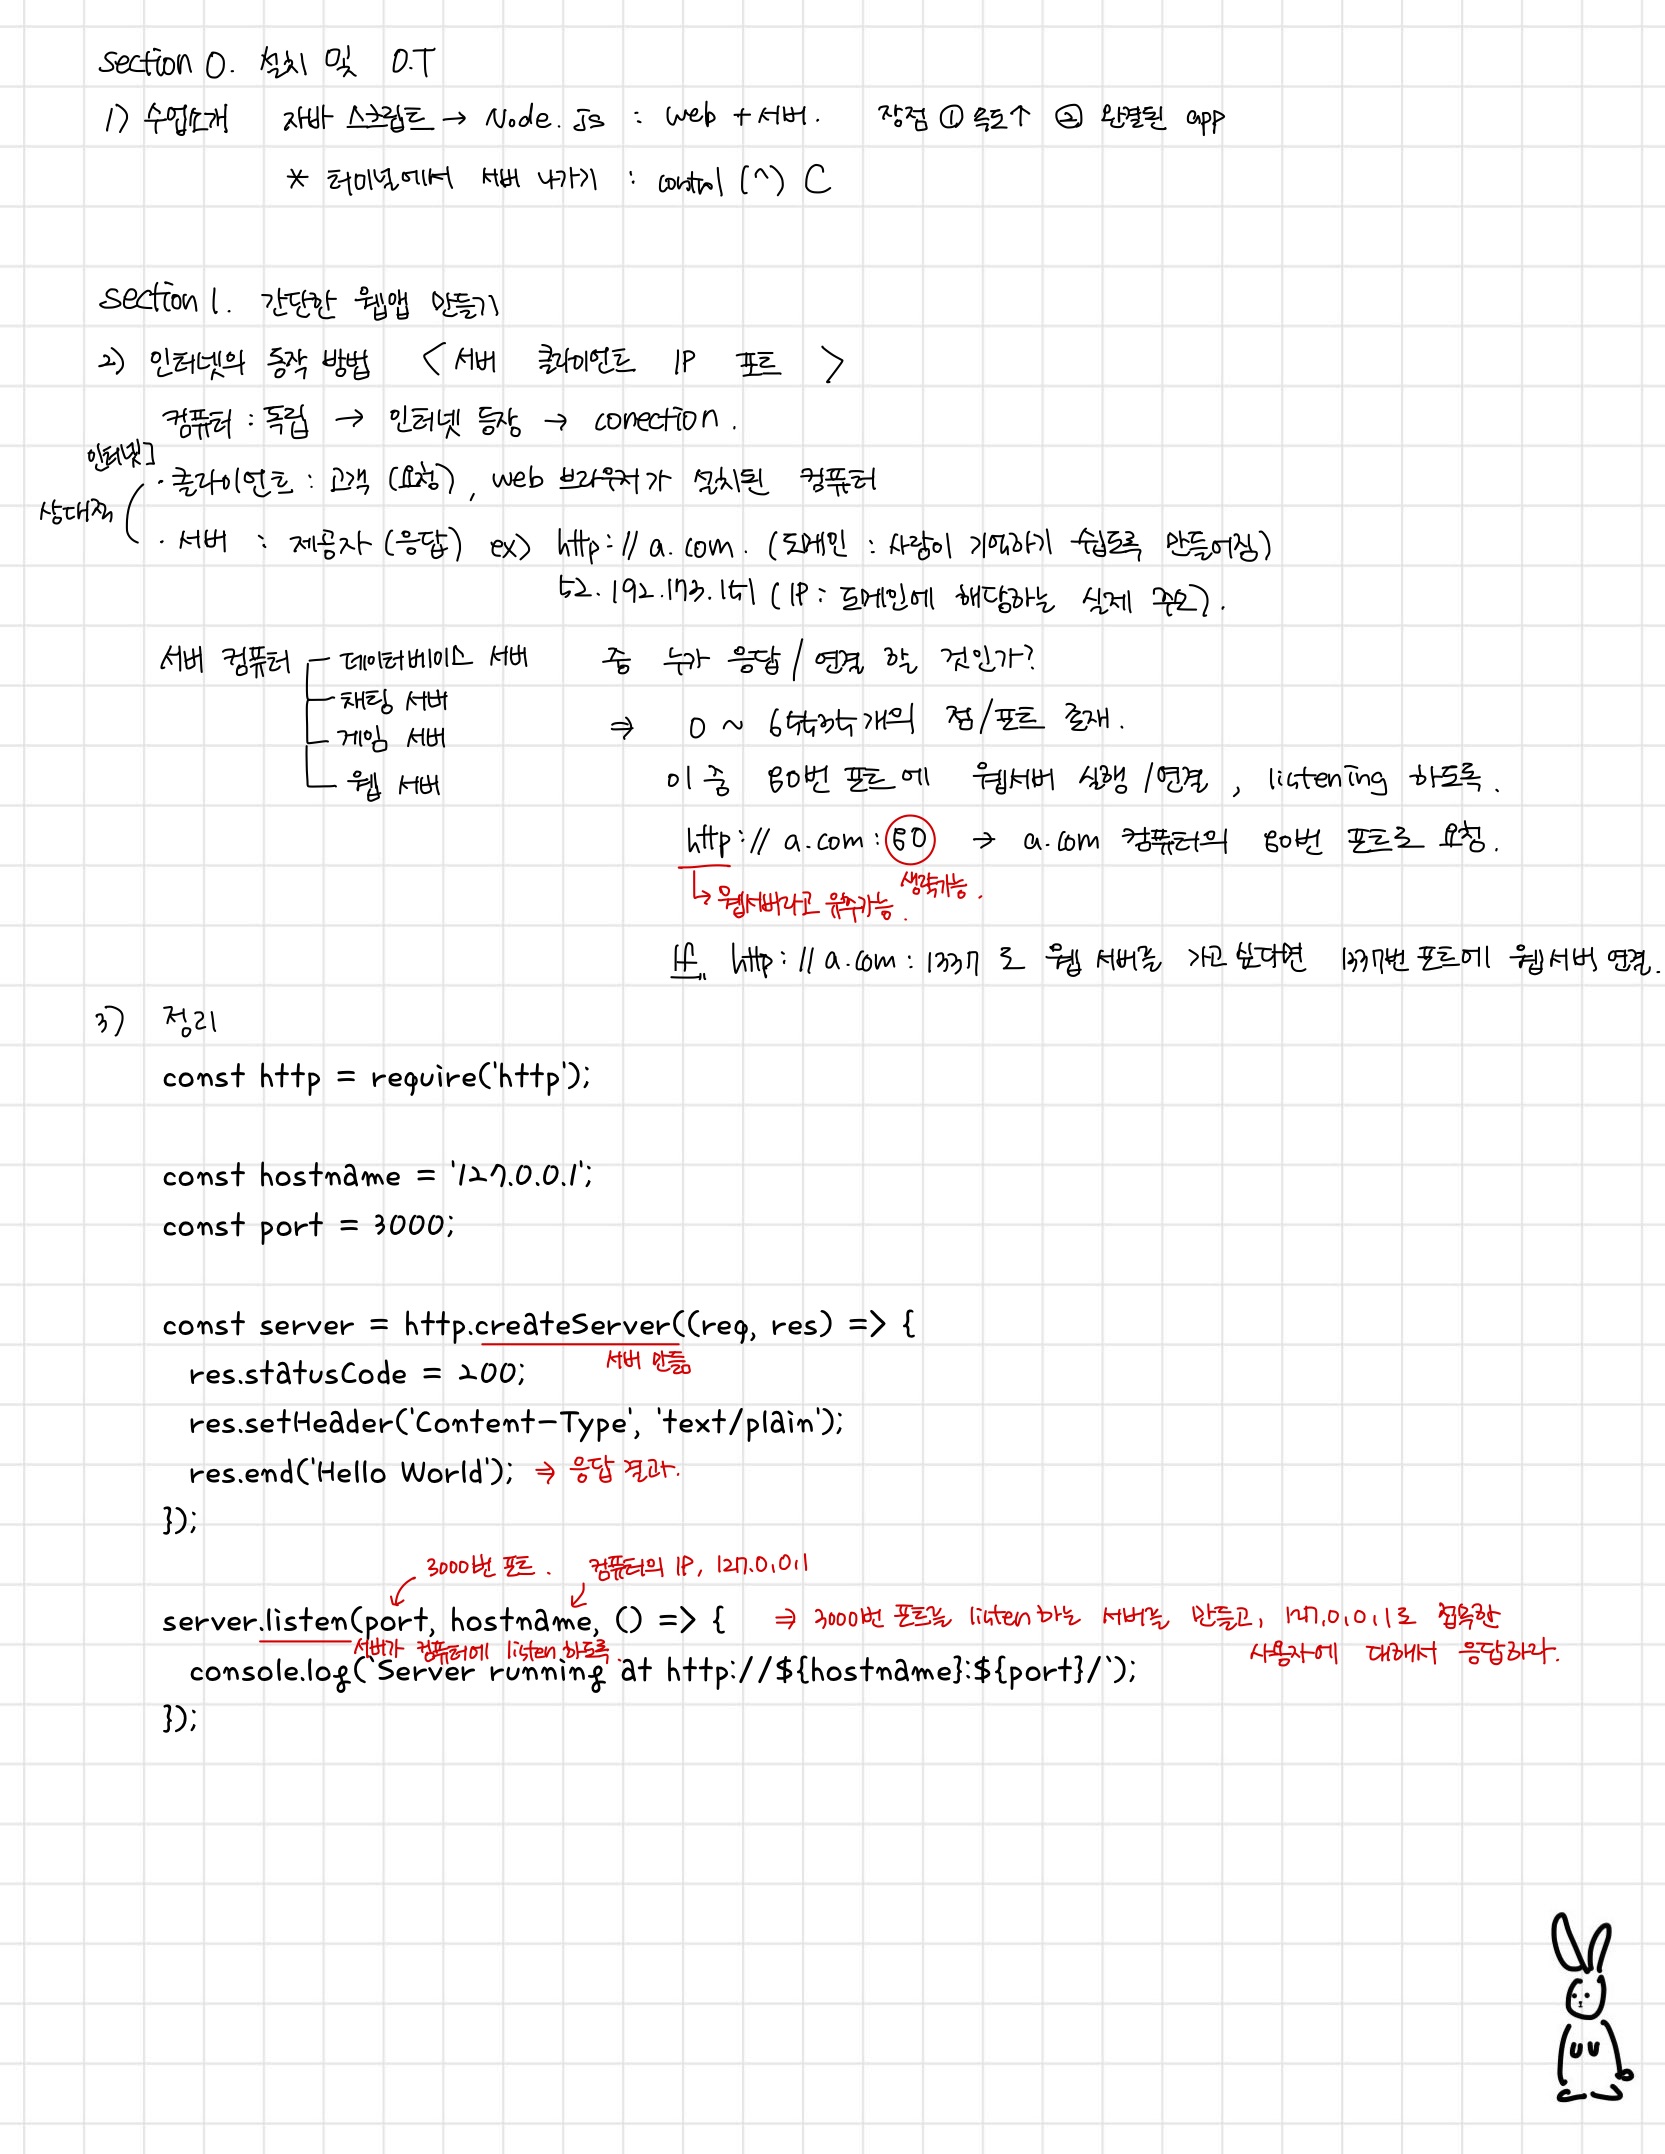 section 0. 설치 및 O.T
1) 수업소개 자바 스크립트 → Node.js : web + 서버. 장점 ① 속도↑ ② 완결된 app
* 터미널에서 서버 나가기 : control (^) C
section 1. 간단한 웹앱 만들기
2) 인터넷의 동작 방법 < 서버 클라이언트 IP 포트 >
컴퓨터 : 독립 → 인터넷 등장 → conection.
인터넷]
· 클라이언트 : 고객 (요청), web 브라우저가 설치된 컴퓨터
상대적
· 서버 : 제공자 (응답) ex) http://a.com. (도메인 : 사람이 기억하기 쉽도록 만들어짐)
52.192.173.151 (IP : 도메인에 해당하는 실제 주소).
서버 컴퓨터 데이터베이스 서버 중 누가 응답 / 연결 할 것인가?
채팅 서버
게임 서버 ⇒ 0 ~ 65535개의 점/포트 존재.
웹 서버 이 중 80번 포트에 웹서버 실행/연결, listening 하도록.
http://a.com:80 → a.com 컴퓨터의 80번 포트로 요청.
생략가능.
↳ 웹서버라고 유추가능.
If, http://a.com:1337 로 웹 서버를 가고 싶다면 1337번 포트에 웹서버 연결.
3) 정리
const http = require('http');
const hostname = '127.0.0.1';
const port = 3000;
const server = http.createServer((req, res) => {
서버 만듦
res.statusCode = 200;
res.setHeader('Content-Type', 'text/plain');
res.end('Hello World'); ⇒ 응답 결과.
});
3000번 포트. 컴퓨터의 IP, 127.0.0.1
server.listen(port, hostname, () => { ⇒ 3000번 포트를 listen 하는 서버를 만들고, 127.0.0.1로 접속한
서버가 컴퓨터에 listen 하도록. 사용자에 대해서 응답하라.
console.log(`Server running at http://${hostname}:${port}/`);
});